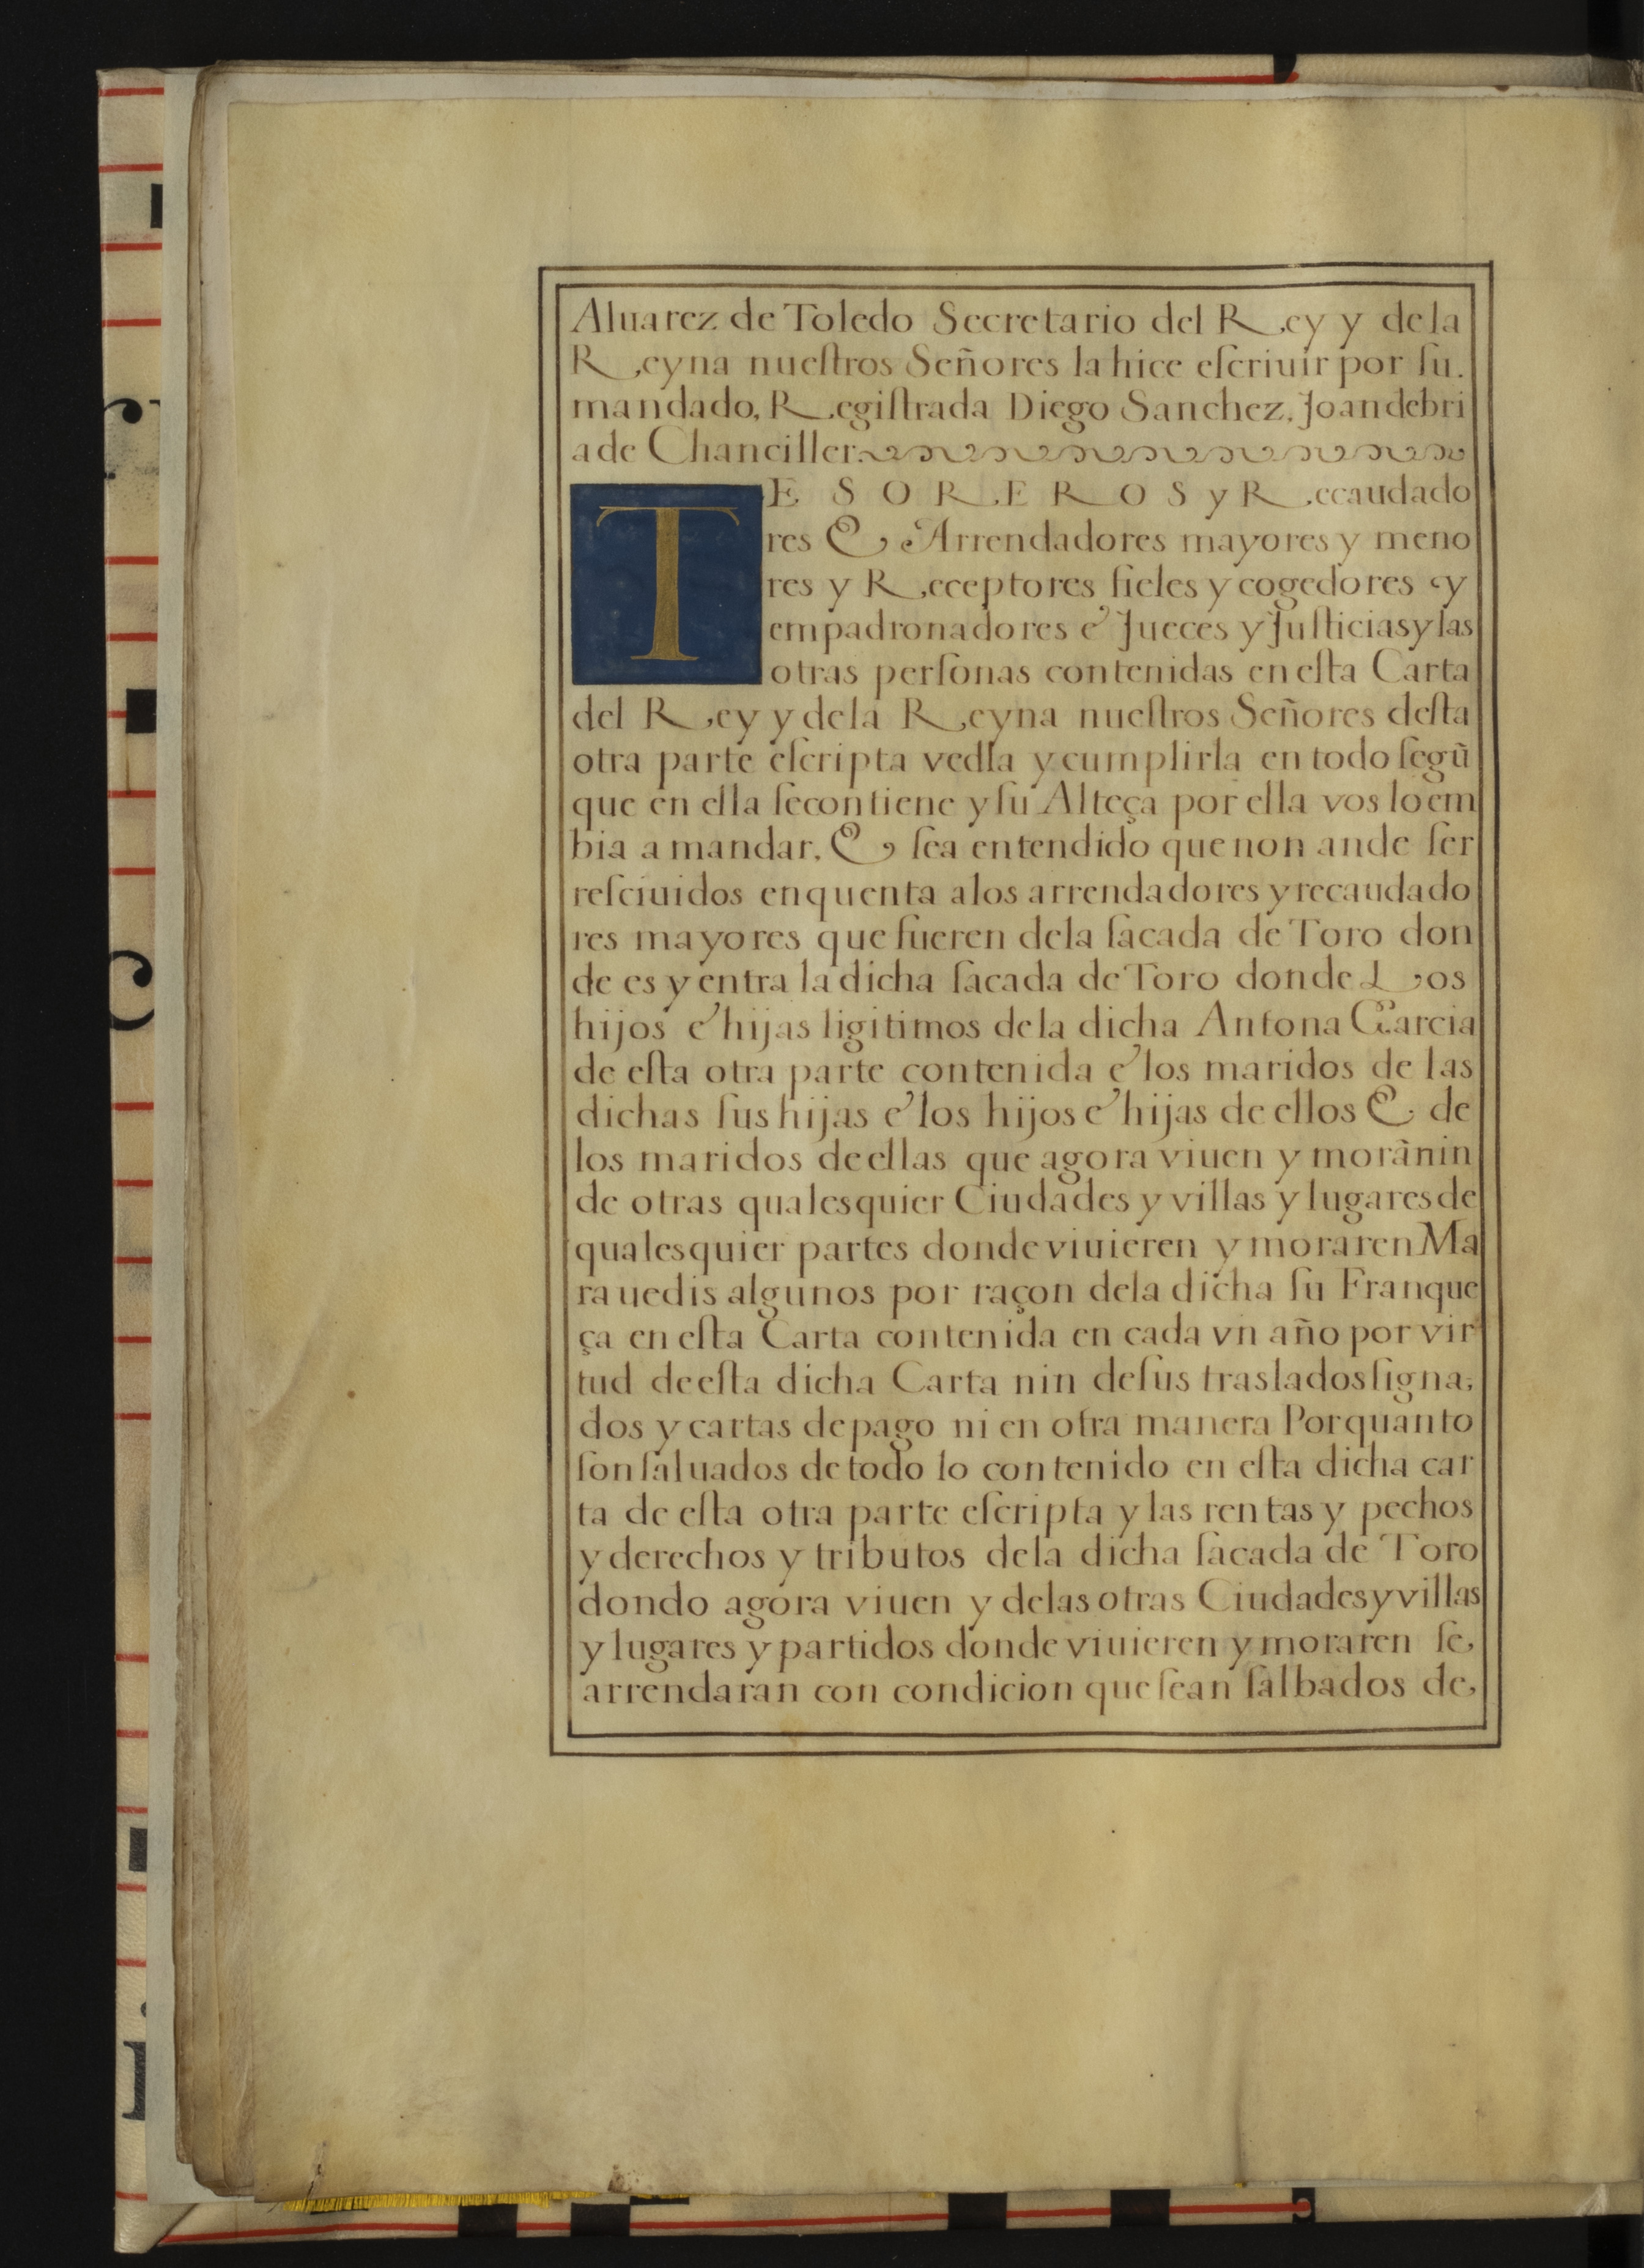 Aluarez de Toledo Secretario del Rey y de la
Reyna nueſtros Señores la hice eſcriuir por ſu.
mandado, Regiſtrada Diego Sanchez, Joan de bri
a de Chanciller.
TESOREROS y Recaudado
res & Arrendadores mayores y meno
res y Receptores fieles y cogedores y
empadronadores e Jueces y Juſticias y las
otras perſonas contenidas en eſta Carta
del Rey y de la Reyna nueſtros Señores deſta
otra parte eſcripta vedla y cumplirla en todo ſegũ
que en ella ſe contiene y ſu Alteça por ella vos lo em
bia a mandar, & ſea entendido que non ande ſer
reſciuidos en quenta a los arrendadores y recaudado
res mayores que fueren de la ſacada de Toro don
de es y entra la dicha ſacada de Toro donde Los
hijos e hijas ligitimos de la dicha Antona Garcia
de eſta otra parte contenida e los maridos de las
dichas ſus hijas e los hijos e hijas de ellos & de
los maridos de ellas que agora viuen y morãnin
de otras qualesquier Ciudades y villas y lugares de
qualesquier partes donde viuieren y moraren Ma
rauedis algunos por raçon de la dicha ſu Franque
ça en eſta Carta contenida en cada vn año por vir
tud de eſta dicha Carta nin de ſus traslados ſigna,
dos y cartas de pago ni en otra manera Porquanto
ſon ſaluados de todo lo contenido en eſta dicha car
ta de eſta otra parte eſcripta y las rentas y pechos
y derechos y tributos de la dicha ſacada de Toro
dondo agora viuen y de las otras Ciudades y villas
y lugares y partidos donde viuieren y moraren ſe,
arrendaran con condicion que ſean ſalbados de,